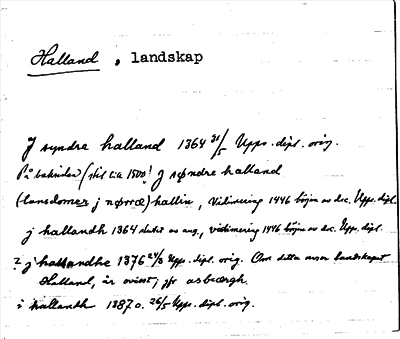 Halland, landskap
J syndre halland 1364 31/5 Upps. dipl. orig.
På baksidan (stil c:a 1500) J søndre halland
(landsdomer j nørræ) hallin, Vidimering 1446 början av dec. Upps. dipl.
j hallandh 1364 slutet av aug., vidimering 1446 början av dec. Upps. dipl.
? j hallandhe 1376 24/3 Upps. dipl. orig. Om detta avser landskapet
Halland, är ovisst, jfr asbærgh.
i hallandh 1387 o. 26/5 Upps. dipl. orig.